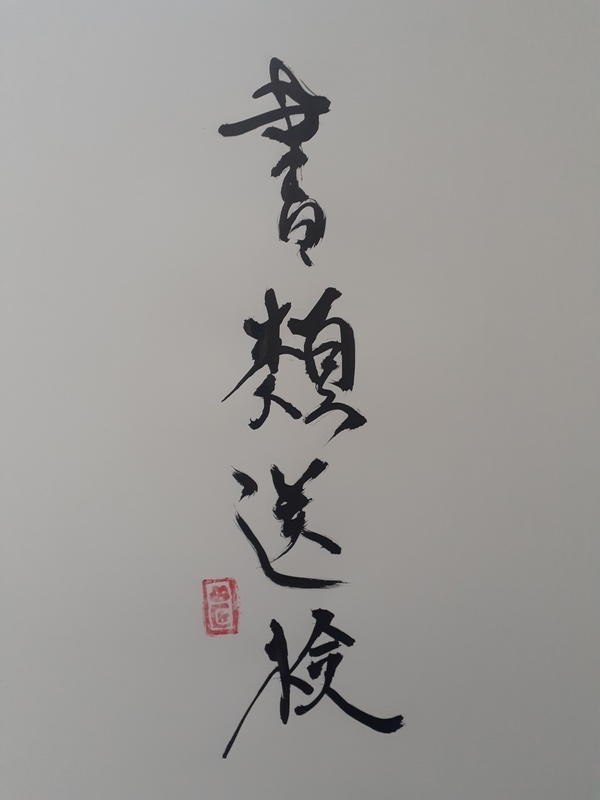 書類送検